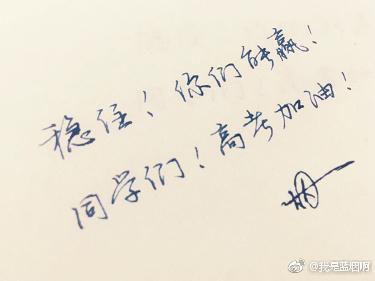 稳住！你们能赢！
同学们！高考加油！
@我是蓝烟啊